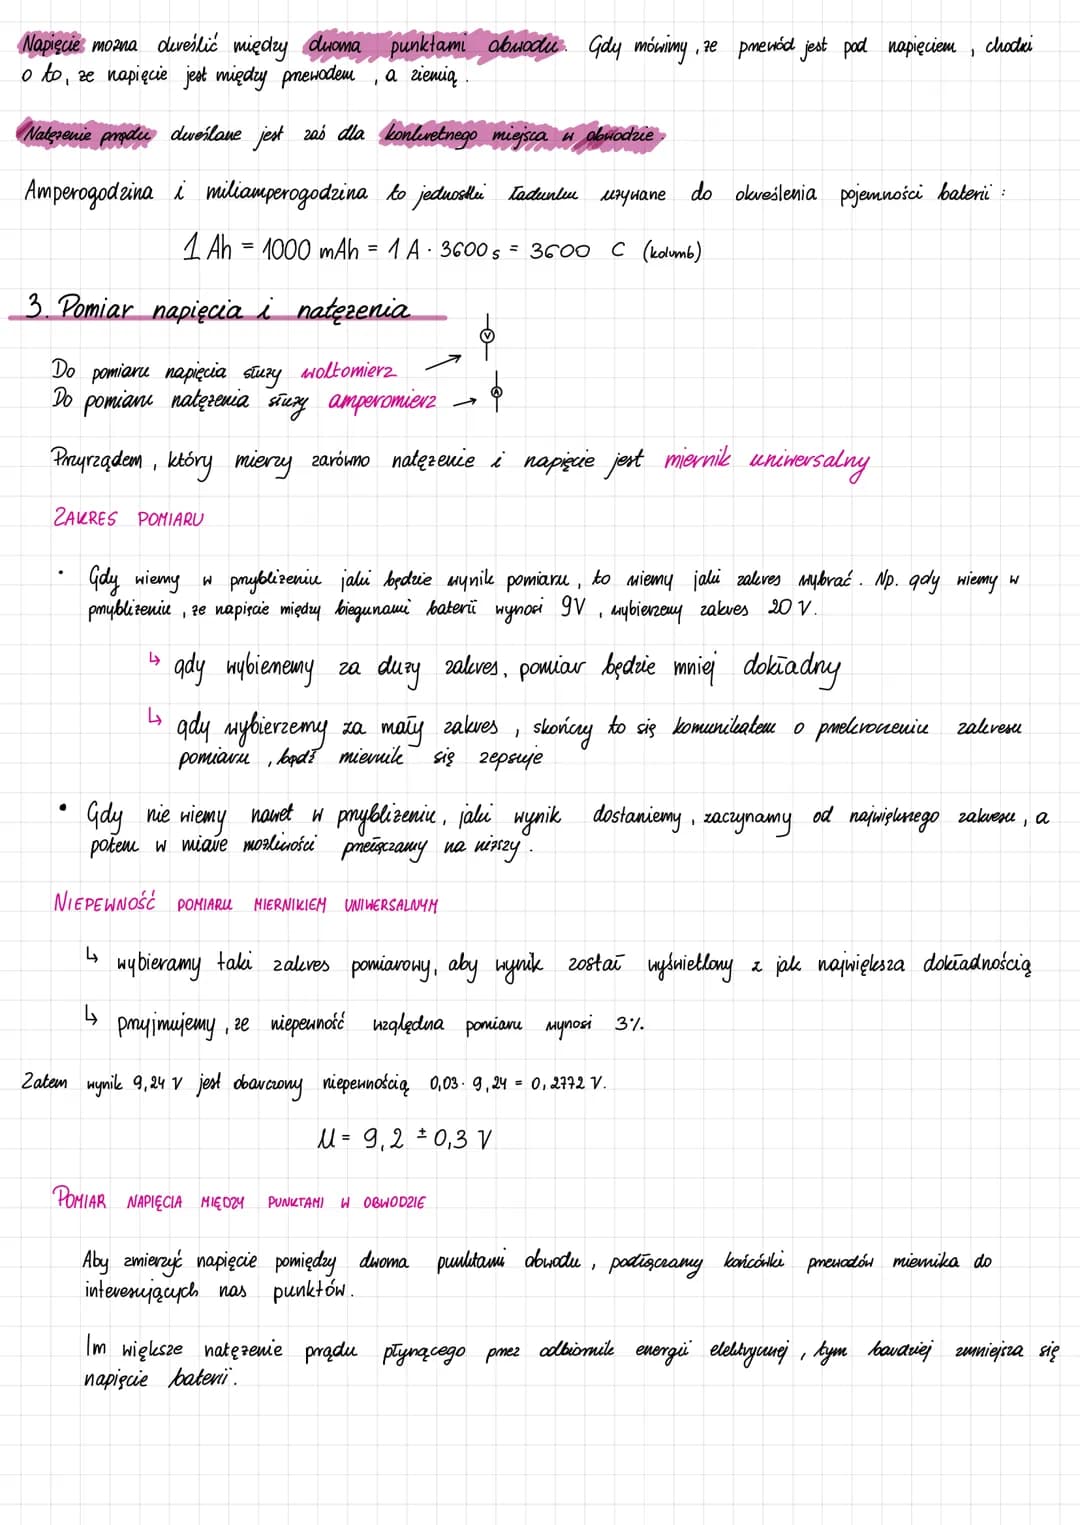 Napięcie można określić między dwoma punktami obwodu. Gdy mówimy, że przewód jest pod napięciem, chodzi
o to, że napięcie jest między przewodem, a ziemią.
Natężenie prądu określane jest zaś dla konkretnego miejsca w obwodzie.
Amperogodzina i miliamperogodzina to jednostki ładunku używane do określenia pojemności baterii:
1 Ah = 1000 mAh = 1 A · 3600 s = 3600 C (kolumb)
3. Pomiar napięcia i natężenia
V
Do pomiaru napięcia służy woltomierz →
Do pomiaru natężenia służy amperomierz → A
Przyrządem, który mierzy zarówno natężenie i napięcie jest miernik uniwersalny
ZAKRES POMIARU
• Gdy wiemy w przybliżeniu jaki będzie wynik pomiaru, to wiemy jaki zakres wybrać. Np. gdy wiemy w
przybliżeniu, że napięcie między biegunami baterii wynosi 9V, wybierzemy zakres 20 V.
↳ gdy wybierzemy za duży zakres, pomiar będzie mniej dokładny
↳ gdy wybierzemy za mały zakres, skończy to się komunikatem o przekroczeniu zakresu
pomiaru, bądź miernik się zepsuje
• Gdy nie wiemy nawet w przybliżeniu, jaki wynik dostaniemy, zaczynamy od największego zakresu, a
potem w miarę możliwości przełączamy na niższy.
NIEPEWNOŚĆ POMIARU MIERNIKIEM UNIWERSALNYM
↳ wybieramy taki zakres pomiarowy, aby wynik został wyświetlony z jak największa dokładnością
↳ przyjmujemy, że niepewność względna pomiaru wynosi 3%.
Zatem wynik 9,24 V jest obarczony niepewnością 0,03 · 9,24 = 0,2772 V.
U = 9,2 ± 0,3 V
POMIAR NAPIĘCIA MIĘDZY PUNKTAMI W OBWODZIE
Aby zmierzyć napięcie pomiędzy dwoma punktami obwodu, podłączamy końcówki przewodów miernika do
interesujących nas punktów.
Im większe natężenie prądu płynącego przez odbiornik energii elektrycznej, tym bardziej zmniejsza się
napięcie baterii.